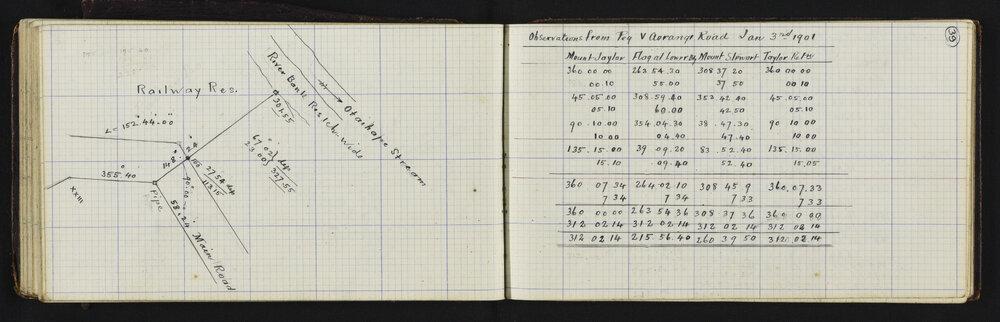 Railway Res.
River Bank Res. 1ch. wide
Otaihape Stream
301.55
L= 152.44.00
67.02 } dip
23.00 } 327.55
355.40
xxiii
90.00
27.54 dip
113.15
Pipe
58.24
Main Road
39
Observations from Peg V Aorangi Road Jan 3rd 1901
Mount Taylor Flag at Lower Mount Stewart Taylor
360 00 00 263 54.30 308 37 20 360 00 00
00.10 55.00 37 50 00 10
45.05.00 308.59.40 353 42 40 45.05.00
05.10 60.00 42.50 05.10
90.10.00 354.04.30 38.47.30 90 10 00
10 00 04.40 47.40 10.00
135.15.00 39.09.20 83.52.40 135.15.00
15.10 .09.40 52.40 15.05
360 07 34 264.02.10 308 45.9 360.07.33
7 34 7 34 7 33 7 33
360 00 00 263 54 36 308 37 36 360 0 00
312 02 14 312 02 14 312 02 14 312 02 14
312 02 14 215.56.40 260 39 50 312.02.14